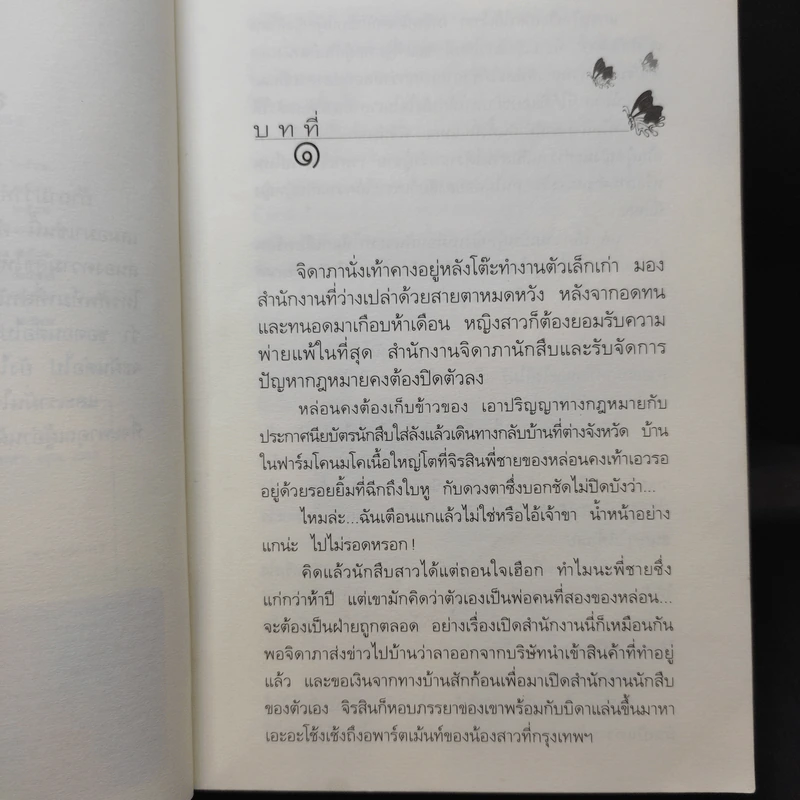 บ ท ที่
๑
จิดาภานั่งเท้าคางอยู่หลังโต๊ะทำงานตัวเล็กเก่า มอง
สำนักงานที่ว่างเปล่าด้วยสายตาหมดหวัง หลังจากอดทน
และทนอดมาเกือบห้าเดือน หญิงสาวก็ต้องยอมรับความ
พ่ายแพ้ในที่สุด สำนักงานจิดาภานักสืบและรับจัดการ
ปัญหากฎหมายคงต้องปิดตัวลง
หล่อนคงต้องเก็บข้าวของ เอาปริญญาทางกฎหมายกับ
ประกาศนียบัตรนักสืบใส่ลังแล้วเดินทางกลับบ้านที่ต่างจังหวัด บ้าน
ในฟาร์มโคนมโคเนื้อใหญ่โตที่จิรสินพี่ชายของหล่อนคงเท้าเอวรอ
อยู่ด้วยรอยยิ้มที่ฉีกถึงใบหู กับดวงตาซึ่งบอกชัดไม่ปิดบังว่า...
ไหมล่ะ...ฉันเตือนแกแล้วไม่ใช่หรือไอ้เจ้าขา น้ำหน้าอย่าง
แกน่ะ ไปไม่รอดหรอก!
คิดแล้วนักสืบสาวได้แต่ถอนใจเฮือก ทำไมนะพี่ชายซึ่ง
แก่กว่าห้าปี แต่เขามักคิดว่าตัวเองเป็นพ่อคนที่สองของหล่อน...
จะต้องเป็นฝ่ายถูกตลอด อย่างเรื่องเปิดสำนักงานนี่ก็เหมือนกัน
พอจิดาภาส่งข่าวไปบ้านว่าลาออกจากบริษัทนำเข้าสินค้าที่ทำอยู่
แล้ว และขอเงินจากทางบ้านสักก้อนเพื่อมาเปิดสำนักงานนักสืบ
ของตัวเอง จิรสินก็หอบภรรยาของเขาพร้อมกับบิดาแล่นขึ้นมาหา
เอะอะโช้งเช้งถึงอพาร์ตเม้นท์ของน้องสาวที่กรุงเทพฯ